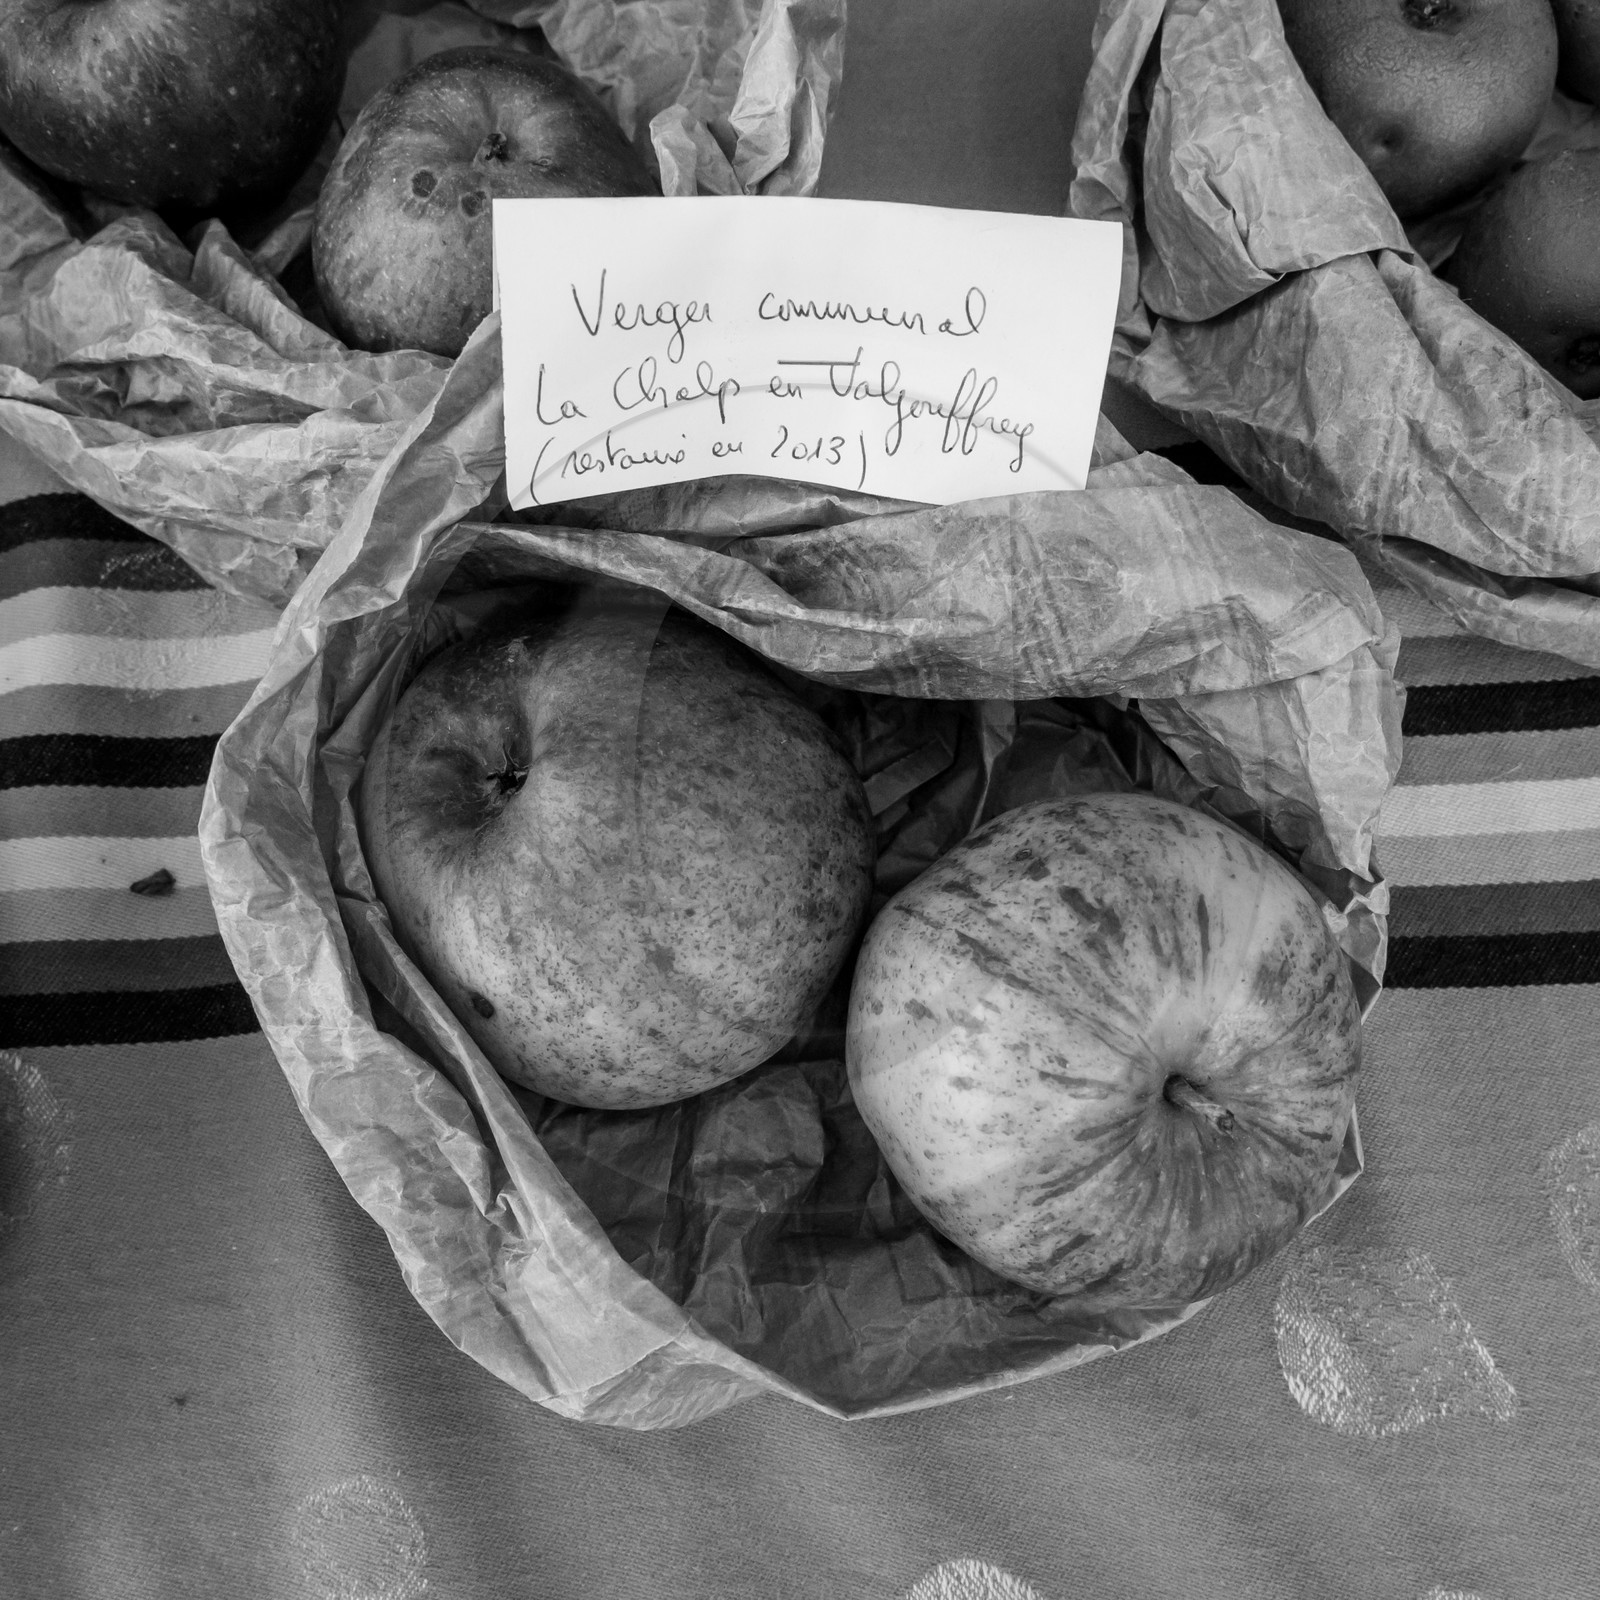 Verger communal
La Chalp en Valjouffrey
(restauré en 2013)